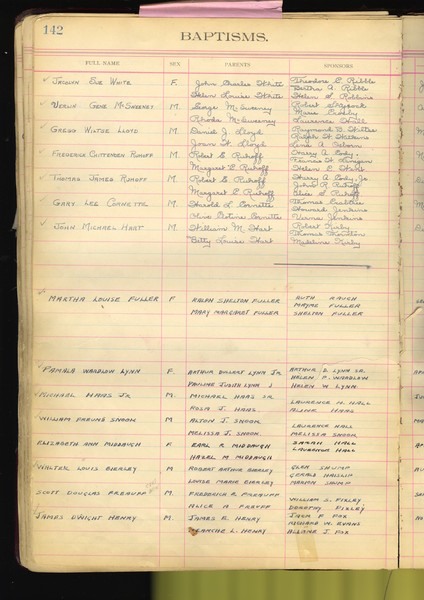 142
BAPTISMS.
FULL NAME SEX PARENTS SPONSORS
Jacolyn Sue White F. John Charles White Theodore E. Ribble
Helen Louise White Bertha A. Ribble
Helen L. Robbins
Verlin Gene McSweeney M. George McSweeney Robert
Rhoda McSweeney Marie
Laurence
Gregg Wiltse Lloyd M. Daniel J. Lloyd Raymond B. Wiltse
Joann H. Lloyd Ralph
Lena A. Osborn
Frederick Chittenden Ruhoff M. Robert E. Ruhoff Harry A. Cody
Margaret E. Ruhoff
Helen E.
Thomas James Ruhoff M. Robert E. Ruhoff Harry A. Cody, Jr.
Margaret E. Ruhoff John R. Ruhoff
Ruhoff
Gary Lee Cornette M. Harold L. Cornette Thomas
Cornette Howard Jenkins
Verna Jenkins
John Michael Hart M. William M. Hart Robert Kirby
Betty Louise Hart Thomas
Madeline Kirby
Martha Louise Fuller F Ralph Shelton Fuller Ruth Rauch
Mary Margaret Fuller Mayme Fuller
Shelton Fuller
Pamala Wardlow Lynn F. Arthur Dillert Lynn Jr Arthur D. Lynn Sr.
Pauline Judith Lynn Helen P. Wardlow
Helen W. Lynn
Michael Haas Jr M. Michael Haas Sr
Rosa J. Haas Laurence H. Hall
Aline Haas
William Freund Snook M Alton J. Snook Laurence Hall
Melissa J. Snook Melissa Snook
Elizabeth Ann Middaugh F Earl R Middaugh Sarah Hall
Hazel M Middaugh Laurence Hall
Walter Louis Bierley M Robert Arthur Bierley Glen Shump
Louise Marie Bierley Gerald
Marion Shump
Scott Douglas Prebuff M. Frederick R Prebuff William S. Pixley
Alice H Dorothy Pixley
James Dwight Henry M. James R. Henry Jack F Fox
Blanche L. Henry Richard W. Evans
J. Fox